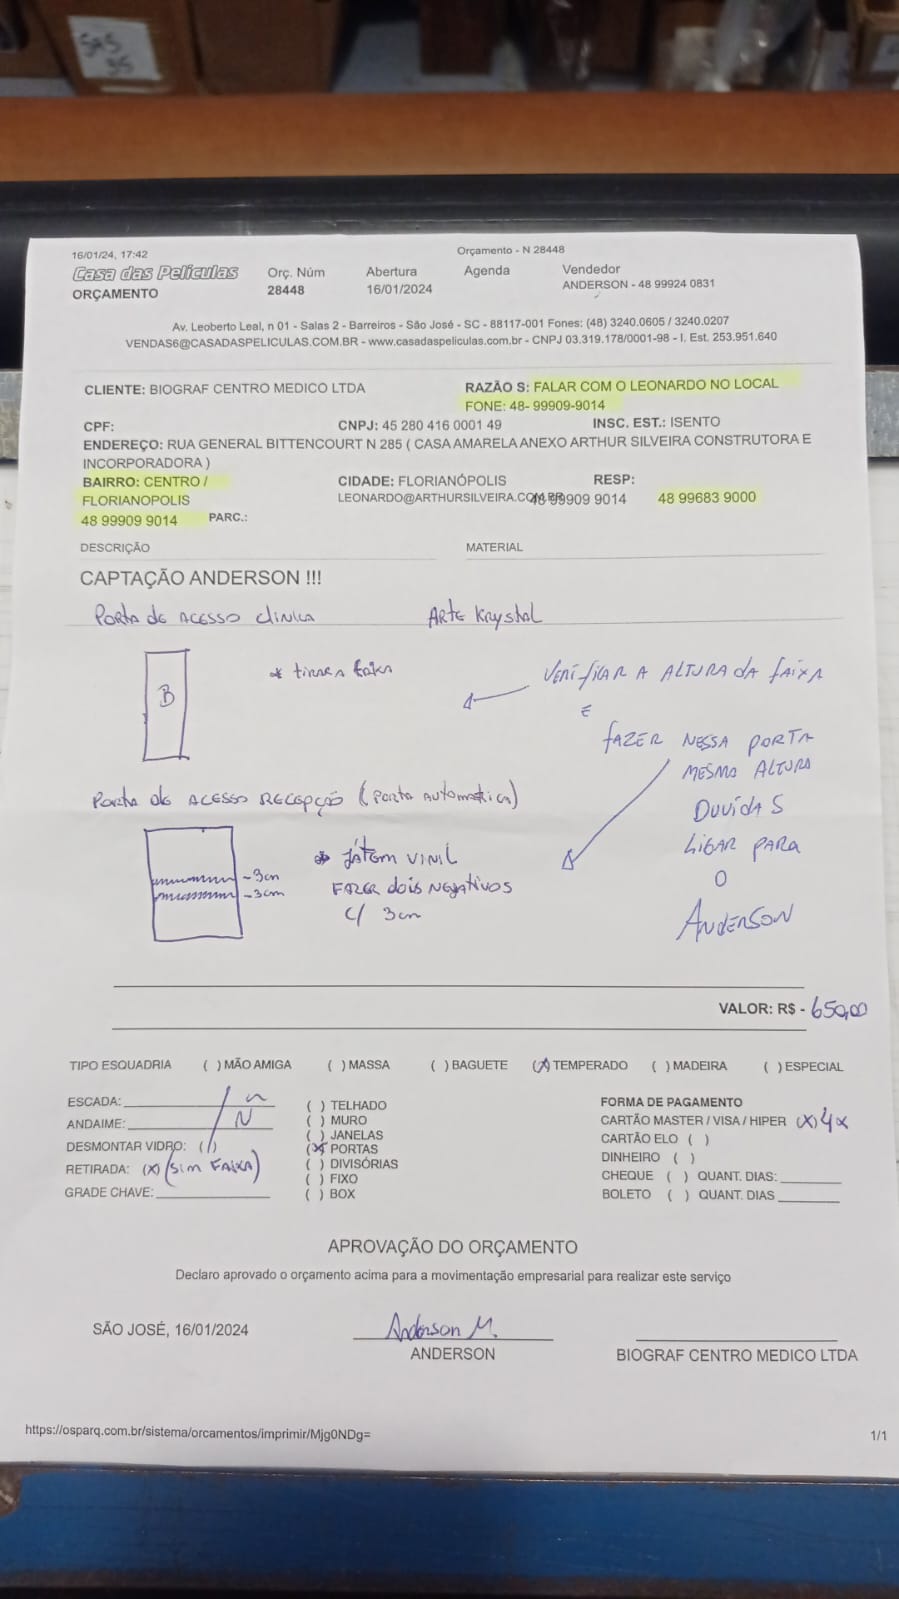 16/01/24, 17:42
Orçamento - N 28448
Casa das Películas
ORÇAMENTO
Orç. Núm
28448
Abertura
16/01/2024
Agenda
Vendedor
ANDERSON - 48 99924 0831
Av. Leoberto Leal, n 01 - Salas 2 - Barreiros - São José - SC - 88117-001 Fones: (48) 3240.0605 / 3240.0207
VENDAS6@CASADASPELICULAS.COM.BR - www.casadaspeliculas.com.br - CNPJ 03.319.178/0001-98 - I. Est. 253.951.640
CLIENTE: BIOGRAF CENTRO MEDICO LTDA
RAZÃO S: FALAR COM O LEONARDO NO LOCAL
FONE: 48- 99909-9014
CPF:
CNPJ: 45 280 416 0001 49
INSC. EST.: ISENTO
ENDEREÇO: RUA GENERAL BITTENCOURT N 285 ( CASA AMARELA ANEXO ARTHUR SILVEIRA CONSTRUTORA E
INCORPORADORA )
BAIRRO: CENTRO /
FLORIANOPOLIS
48 99909 9014
PARC.:
CIDADE: FLORIANÓPOLIS
LEONARDO@ARTHURSILVEIRA.COM.BR
RESP:
48 99909 9014
48 99683 9000
DESCRIÇÃO
MATERIAL
CAPTAÇÃO ANDERSON !!!
Porta de acesso clinica
Arte Krystal
B
Verificar a altura da faixa
E
fazer nessa porta
mesma altura
Duvidas
ligar para
o
Anderson
Porta de acesso recepção (porta automatica)
- 3cm
- 3cm
* Já tem vinil
Fazer dois negativos
c/ 3cm
VALOR: R$ - 650,00
TIPO ESQUADRIA ( ) MÃO AMIGA ( ) MASSA ( ) BAGUETE (X) TEMPERADO ( ) MADEIRA ( ) ESPECIAL
ESCADA:
ANDAIME: N
DESMONTAR VIDRO: (/)
RETIRADA: (X) (sim faixa)
GRADE CHAVE:
( ) TELHADO
( ) MURO
( ) JANELAS
(X) PORTAS
( ) DIVISÓRIAS
( ) FIXO
( ) BOX
FORMA DE PAGAMENTO
CARTÃO MASTER / VISA / HIPER (X) 4x
CARTÃO ELO ( )
DINHEIRO ( )
CHEQUE ( ) QUANT. DIAS:
BOLETO ( ) QUANT. DIAS
APROVAÇÃO DO ORÇAMENTO
Declaro aprovado o orçamento acima para a movimentação empresarial para realizar este serviço
SÃO JOSÉ, 16/01/2024
Anderson M.
ANDERSON
BIOGRAF CENTRO MEDICO LTDA
https://osparq.com.br/sistema/orcamentos/imprimir/Mjg0NDg=
1/1